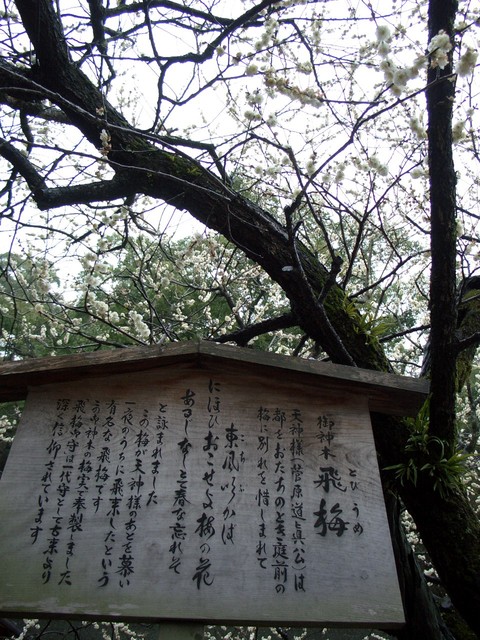 御神木 飛梅
とび うめ
天神様(菅原道真公)は
都をおたちのとき庭前の
梅に別れを惜しまれて
東風ふかば
こち
にほひおこせよ梅の花
あるじなしとて春な忘れそ
と詠まれました
この梅が天神様のあとを慕い
一夜のうちに飛来したという
有名な飛梅です
この御神木の梅の実で奉製しました
飛梅守は一代守として古来より
深く信仰されています